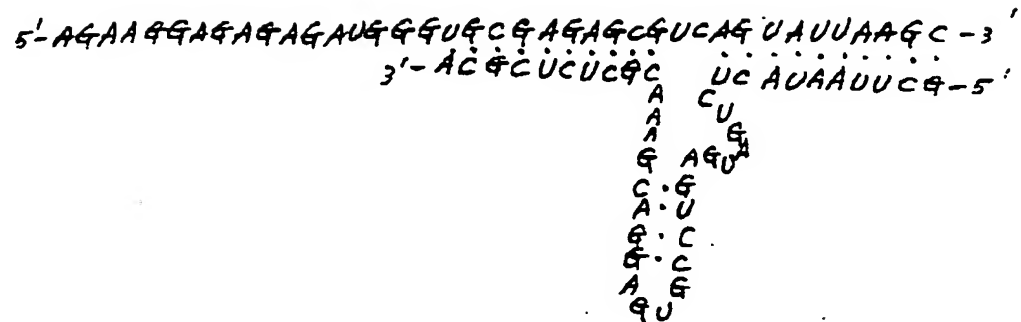 5'-AGAAGGAGAGAGAUGGGUGCGAGAGCGUCAGUAUUAAGC-3'
3'-ACGCUCUCGC UC AUAAUUCG-5'
A C U
A
A G
G AGUA
C·G
A·U
G·C
G·C
A G
GU